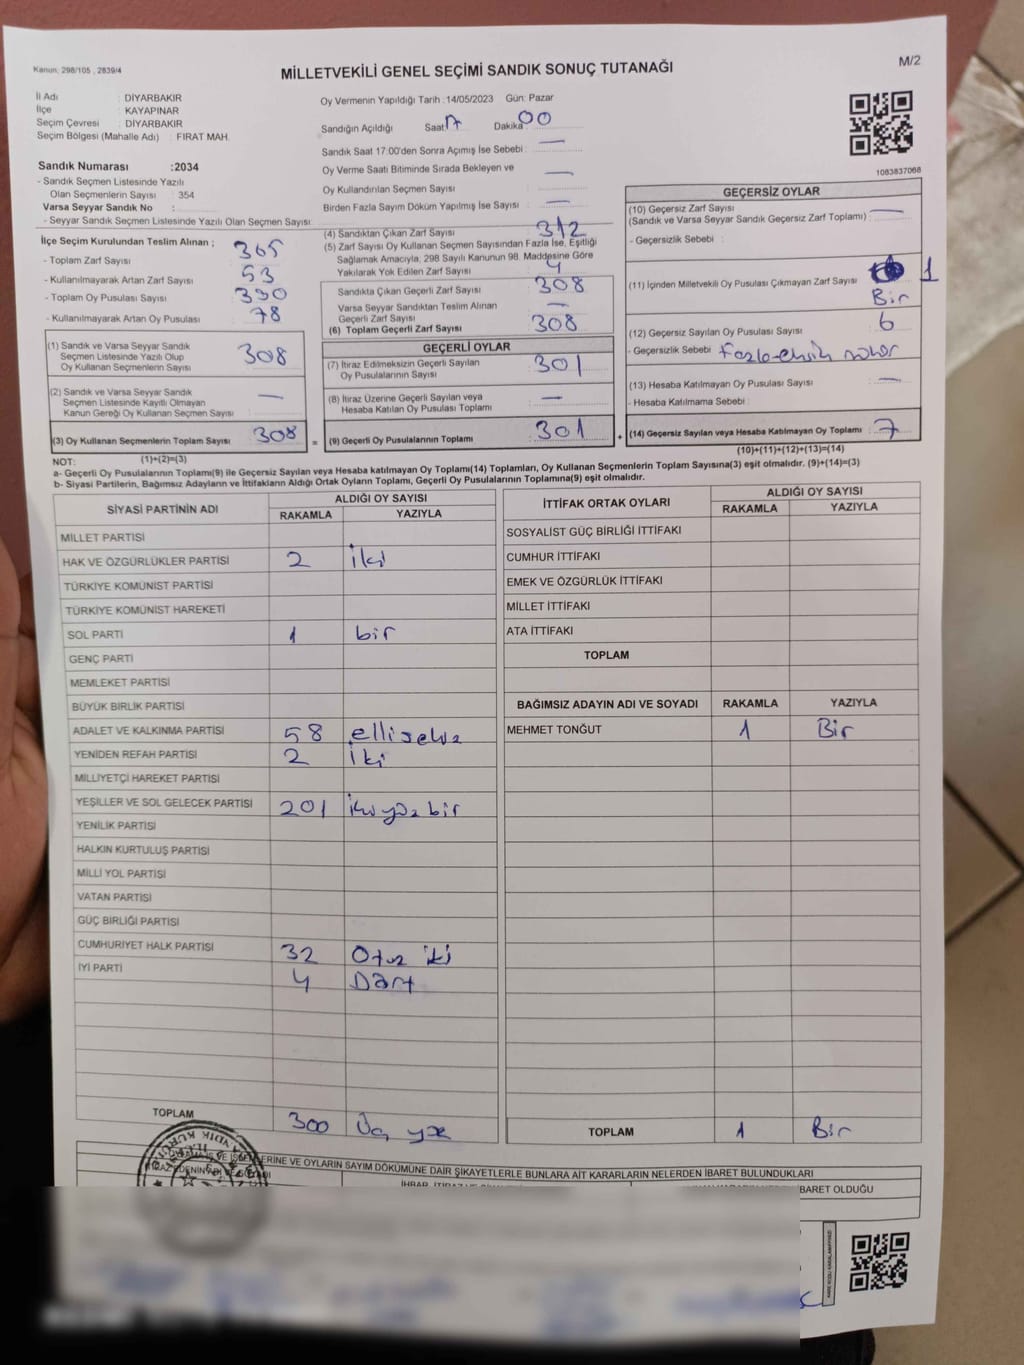 Kanun: 298/105 , 2839/4
MİLLETVEKİLİ GENEL SEÇİMİ SANDIK SONUÇ TUTANAĞI
M/2
İl Adı : DİYARBAKIR
İlçe : KAYAPINAR
Seçim Çevresi : DİYARBAKIR
Seçim Bölgesi (Mahalle Adı) : FIRAT MAH.
Sandık Numarası :2034
- Sandık Seçmen Listesinde Yazılı
Olan Seçmenlerin Sayısı : 354
Varsa Seyyar Sandık No :
- Seyyar Sandık Seçmen Listesinde Yazılı Olan Seçmen Sayısı:
Oy Vermenin Yapıldığı Tarih :14/05/2023 Gün: Pazar
Sandığın Açıldığı Saat 17 Dakika 00
Sandık Saat 17:00'den Sonra Açımış İse Sebebi : —
Oy Verme Saati Bitiminde Sırada Bekleyen ve
Oy Kullandırılan Seçmen Sayısı —
Birden Fazla Sayım Döküm Yapılmış İse Sayısı : —
1083837068
İlçe Seçim Kurulundan Teslim Alınan ;
- Toplam Zarf Sayısı : 365
- Kullanılmayarak Artan Zarf Sayısı : 53
- Toplam Oy Pusulası Sayısı : 390
- Kullanılmayarak Artan Oy Pusulası : 78
(1) Sandık ve Varsa Seyyar Sandık
Seçmen Listesinde Yazılı Olup
Oy Kullanan Seçmenlerin Sayısı 308
(2) Sandık ve Varsa Seyyar Sandık
Seçmen Listesinde Kayıtlı Olmayan
Kanun Gereği Oy Kullanan Seçmen Sayısı —
(3) Oy Kullanan Seçmenlerin Toplam Sayısı 308
(1)+(2)=(3)
(4) Sandıktan Çıkan Zarf Sayısı 312
(5) Zarf Sayısı Oy Kullanan Seçmen Sayısından Fazla İse, Eşitliği
Sağlamak Amacıyla, 298 Sayılı Kanunun 98. Maddesine Göre
Yakılarak Yok Edilen Zarf Sayısı : 4
Sandıkta Çıkan Geçerli Zarf Sayısı 308
Varsa Seyyar Sandıktan Teslim Alınan
Geçerli Zarf Sayısı —
(6) Toplam Geçerli Zarf Sayısı 308
GEÇERLİ OYLAR
(7) İtiraz Edilmeksizin Geçerli Sayılan
Oy Pusulalarının Sayısı 301
(8) İtiraz Üzerine Geçerli Sayılan veya
Hesaba Katılan Oy Pusulası Toplamı —
= (9) Geçerli Oy Pusulalarının Toplamı 301 +
GEÇERSİZ OYLAR
(10) Geçersiz Zarf Sayısı
(Sandık ve Varsa Seyyar Sandık Geçersiz Zarf Toplamı) : —
- Geçersizlik Sebebi :
(11) İçinden Milletvekili Oy Pusulası Çıkmayan Zarf Sayısı 1
Bir
(12) Geçersiz Sayılan Oy Pusulası Sayısı 6
- Geçersizlik Sebebi Fazla-eksik
(13) Hesaba Katılmayan Oy Pusulası Sayısı —
- Hesaba Katılmama Sebebi :
(14) Geçersiz Sayılan veya Hesaba Katılmayan Oy Toplamı 7
(10)+(11)+(12)+(13)=(14)
NOT:
a- Geçerli Oy Pusulalarının Toplamı(9) ile Geçersiz Sayılan veya Hesaba katılmayan Oy Toplamı(14) Toplamları, Oy Kullanan Seçmenlerin Toplam Sayısına(3) eşit olmalıdır. (9)+(14)=(3)
b- Siyasi Partilerin, Bağımsız Adayların ve İttifakların Aldığı Ortak Oyların Toplamı, Geçerli Oy Pusulalarının Toplamına(9) eşit olmalıdır.
SİYASİ PARTİNİN ADI
ALDIĞI OY SAYISI
RAKAMLA YAZIYLA
MİLLET PARTİSİ
HAK VE ÖZGÜRLÜKLER PARTİSİ 2 iki
TÜRKİYE KOMÜNİST PARTİSİ
TÜRKİYE KOMÜNİST HAREKETİ
SOL PARTİ 1 bir
GENÇ PARTİ
MEMLEKET PARTİSİ
BÜYÜK BİRLİK PARTİSİ
ADALET VE KALKINMA PARTİSİ 58
YENİDEN REFAH PARTİSİ 2 iki
MİLLİYETÇİ HAREKET PARTİSİ
YEŞİLLER VE SOL GELECEK PARTİSİ 201 ikiyüz bir
YENİLİK PARTİSİ
HALKIN KURTULUŞ PARTİSİ
MİLLİ YOL PARTİSİ
VATAN PARTİSİ
GÜÇ BİRLİĞİ PARTİSİ
CUMHURİYET HALK PARTİSİ 32 Otuz iki
İYİ PARTİ 4 Dört
TOPLAM 300 Üç yüz
İTTİFAK ORTAK OYLARI
ALDIĞI OY SAYISI
RAKAMLA YAZIYLA
SOSYALİST GÜÇ BİRLİĞİ İTTİFAKI
CUMHUR İTTİFAKI
EMEK VE ÖZGÜRLÜK İTTİFAKI
MİLLET İTTİFAKI
ATA İTTİFAKI
TOPLAM
BAĞIMSIZ ADAYIN ADI VE SOYADI RAKAMLA YAZIYLA
MEHMET TONĞUT 1 Bir
TOPLAM 1 Bir
VE OYLARIN SAYIM DÖKÜMÜNE DAİR ŞİKAYETLERLE BUNLARA AİT KARARLARIN NELERDEN İBARET BULUNDUKLARI
BARET OLDUĞU